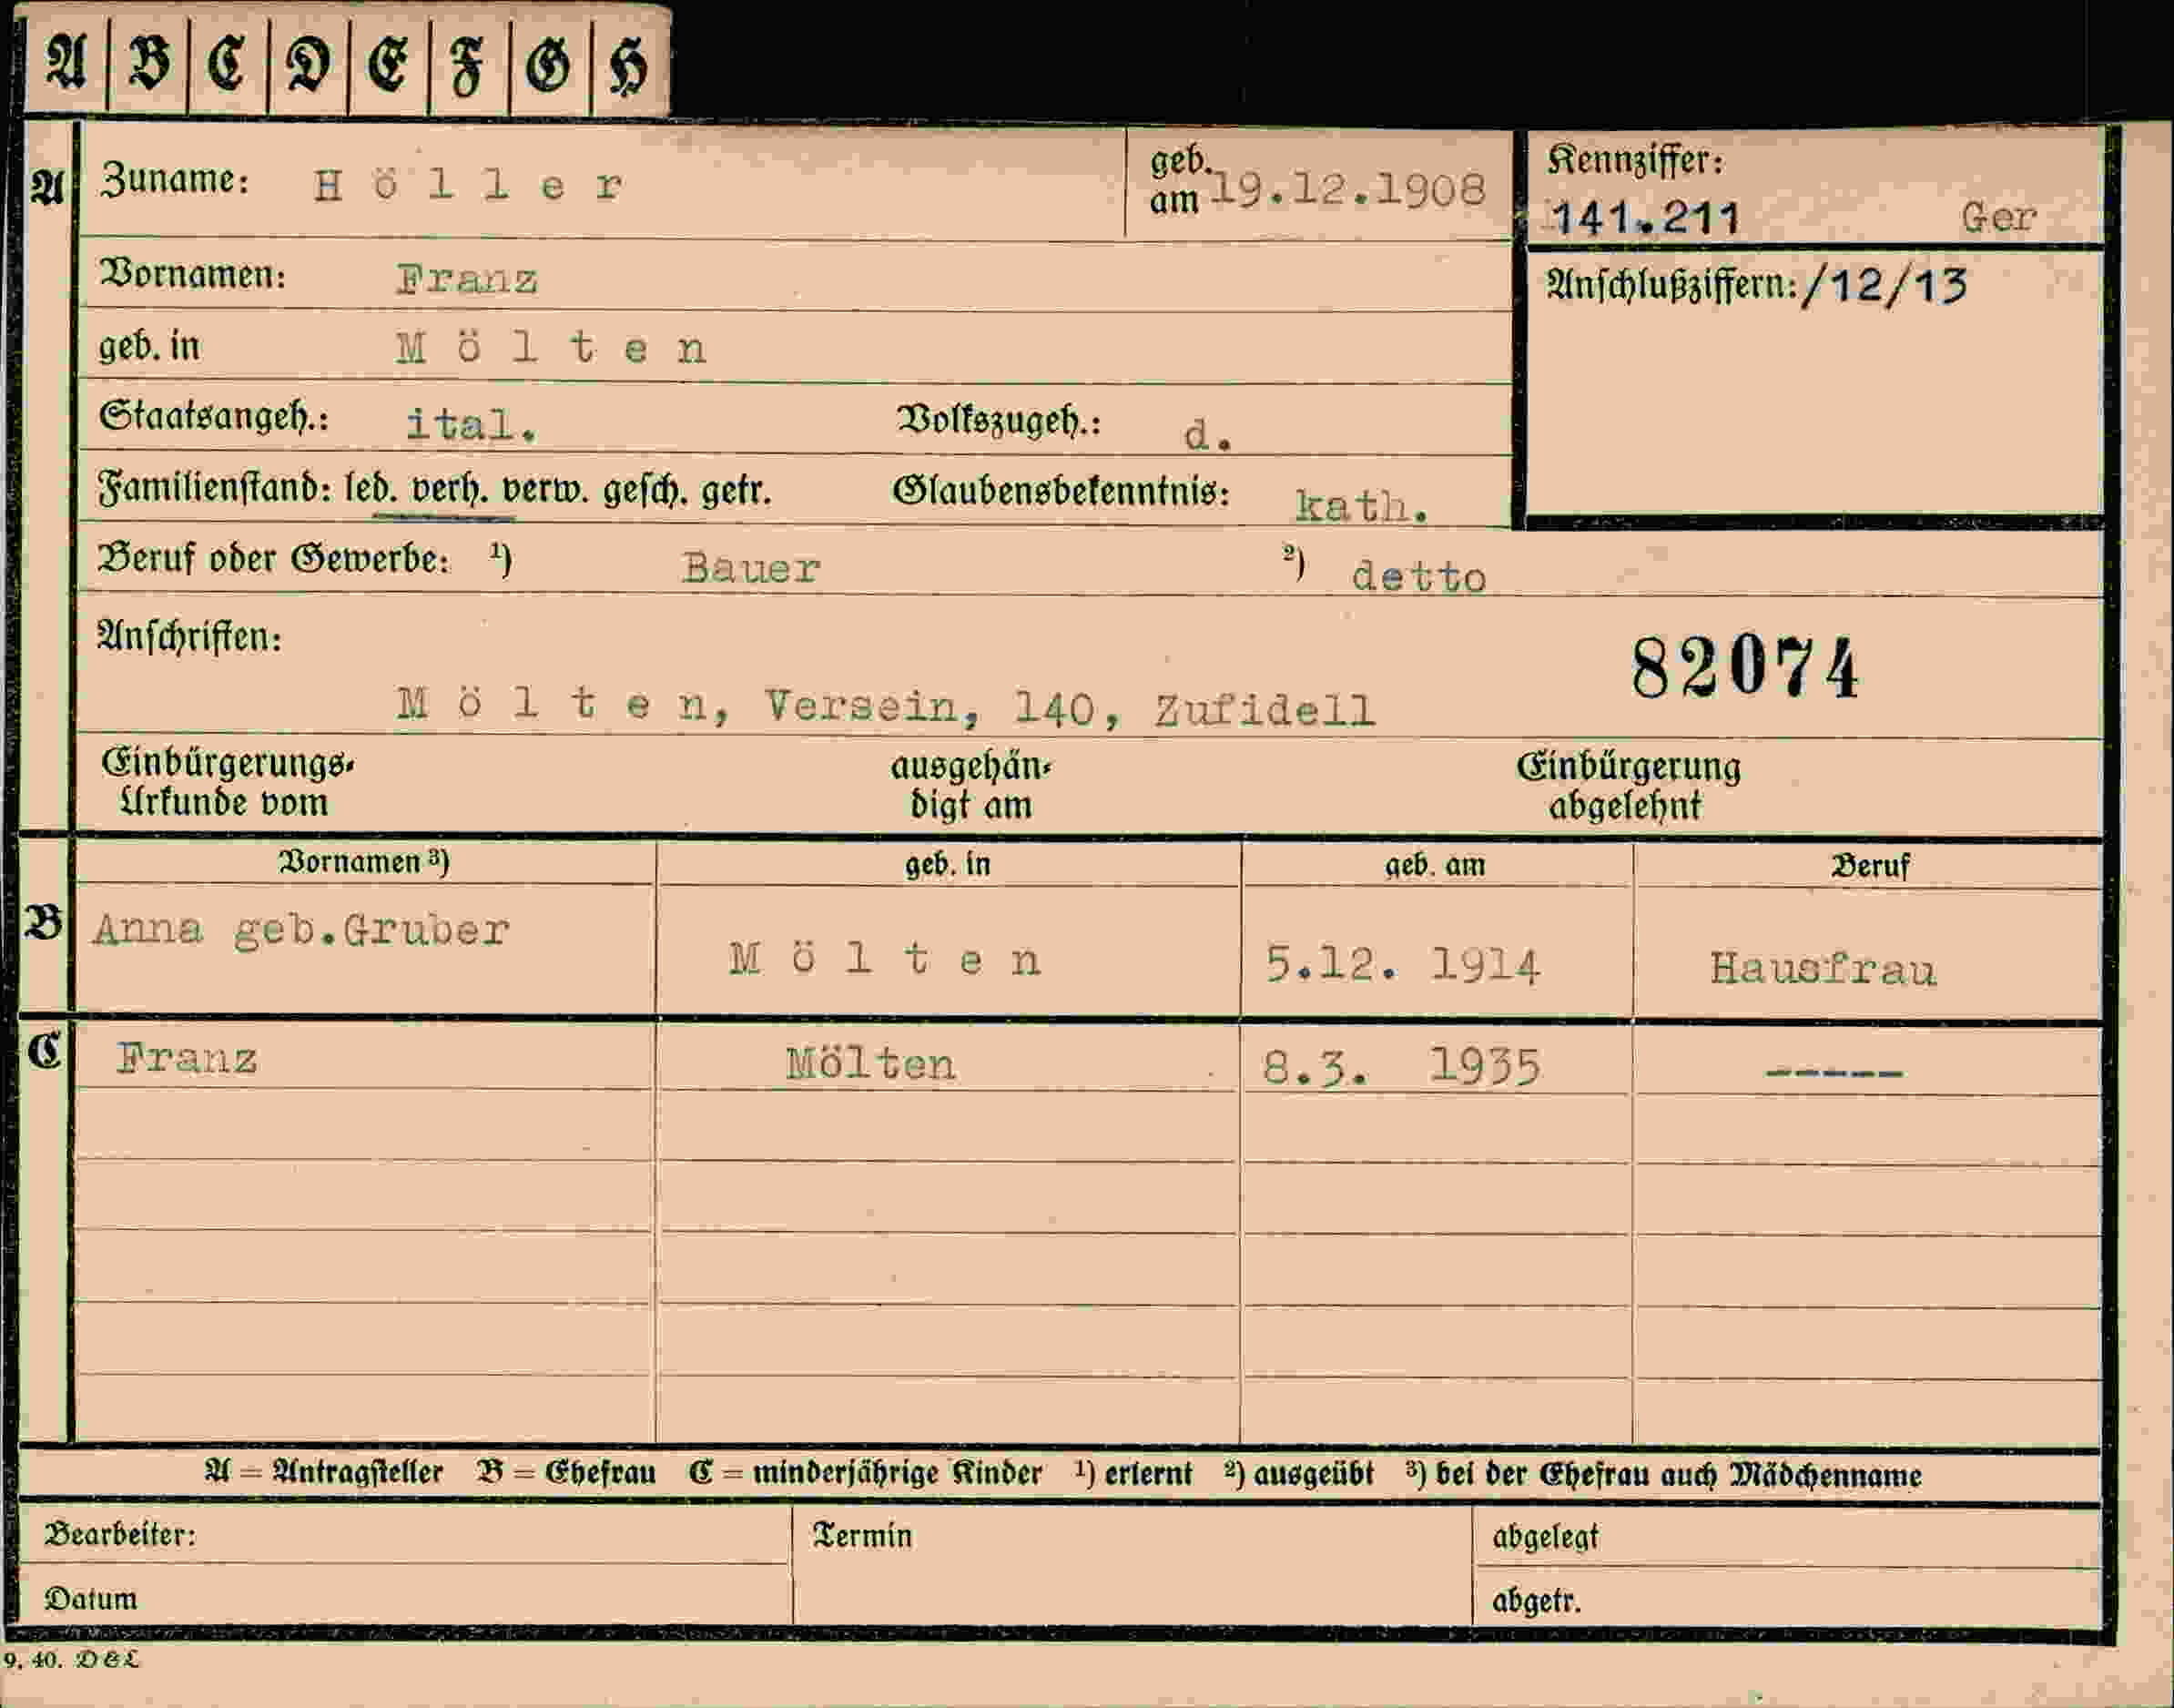 A B C D E F G H
A Zuname: Höller geb. am 19.12.1908 Kennziffer:
141.211 Ger
Vornamen: Franz Anschlußziffern: /12/13
geb. in Mölten
Staatsangeh.: ital. Volkszugeh.: d.
Familienstand: led. verh. verw. gesch. getr. Glaubensbekenntnis: kath.
Beruf oder Gewerbe: ¹) Bauer ²) detto
Anschriften: 82074
Mölten, Versein, 140, Zufidell
Einbürgerungs- ausgehän- Einbürgerung
Urkunde vom digt am abgelehnt
Vornamen ³) geb. in geb. am Beruf
B Anna geb.Gruber Mölten 5.12. 1914 Hausfrau
C Franz Mölten 8.3. 1935 -----
A = Antragsteller B = Ehefrau C = minderjährige Kinder ¹) erlernt ²) ausgeübt ³) bei der Ehefrau auch Mädchenname
Bearbeiter: Termin abgelegt
Datum abgetr.
9. 40. D&L